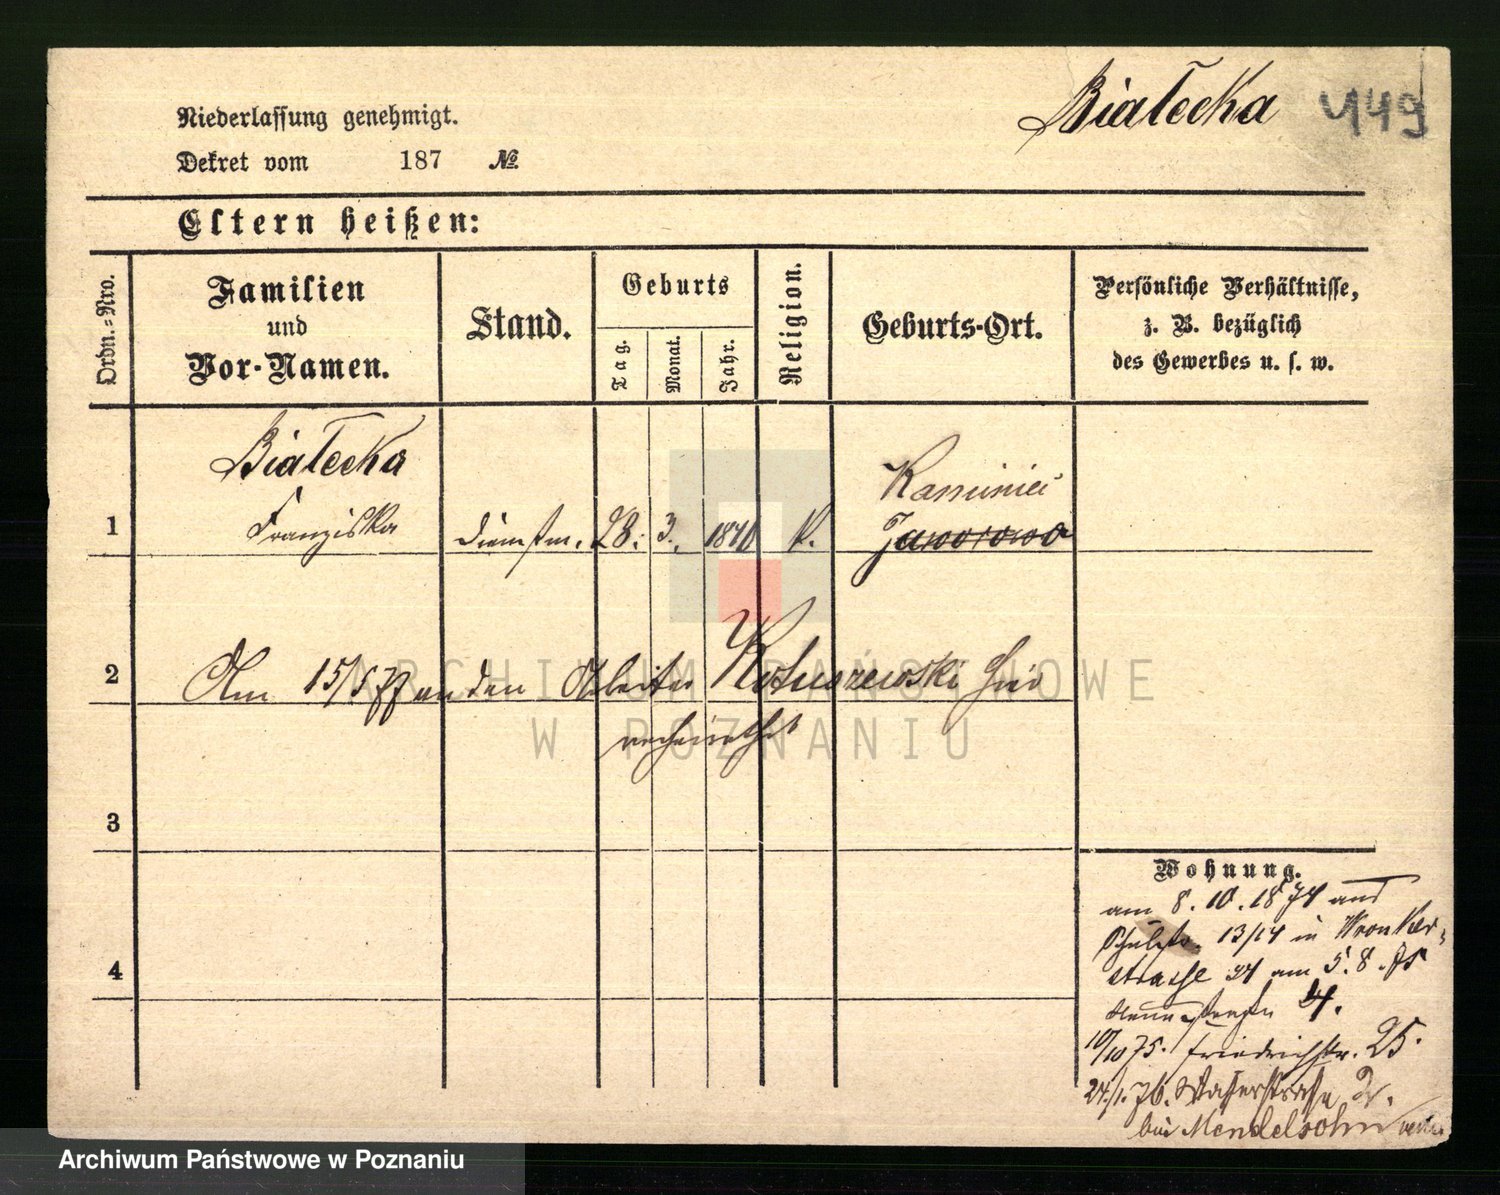 Białecka 449
Niederlassung genehmigt.
Dekret vom 187 №
Eltern heißen:
Ordn.-Nro.
Familien
und
Vor-Namen.
Stand.
Geburts
Tag.
Monat.
Jahr.
Religion.
Geburts-Ort.
Persönliche Verhältnisse,
z. B. bezüglich
des Gewerbes u. s. w.
Białecka
Kaminiec
1 Franziska Dienstm. 28. 3. K. Jaworowo
2 Am 15/5 77 an den Arbeiter hier
verheirathet
3
4
Wohnung.
am 8. 10. 1874 aus
Schulstr. 13/14 in Wronker-
strasse am 5. 8. 75
4.
10/10 75. Friedrichstr. 25.
24./1. 76. Wasserstrasse 2.
bei Mendelsohn
ARCHIWUM PAŃSTWOWE
W POZNANIU
Archiwum Państwowe w Poznaniu